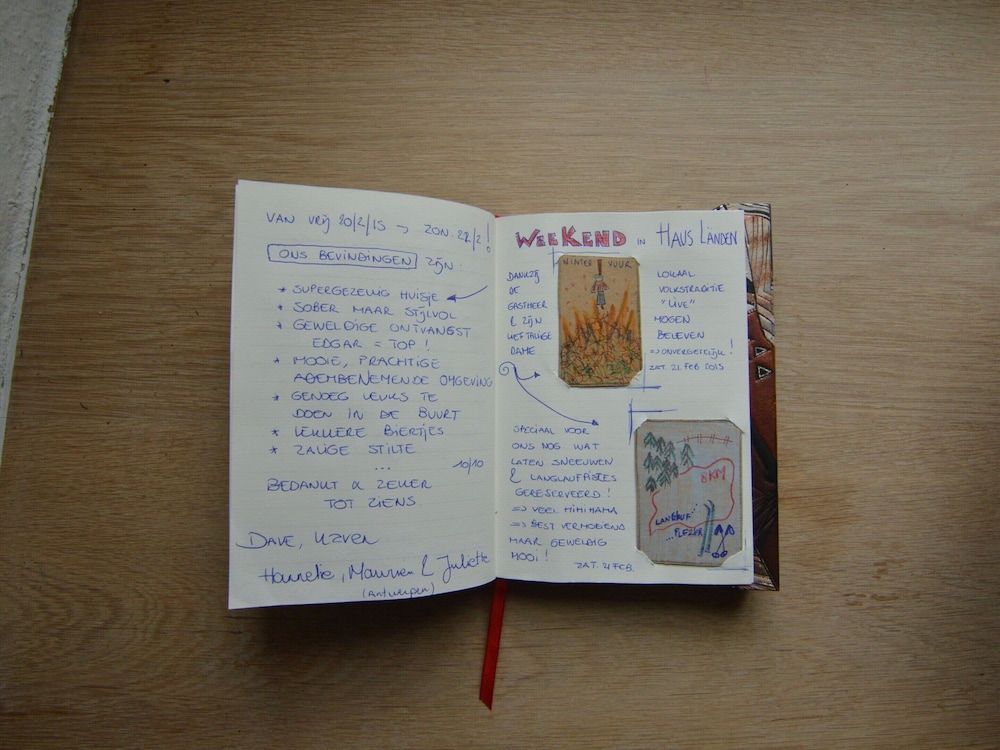 VAN VRIJ 20/2/15 → ZON. 22/2!
ONS BEVINDINGEN ZIJN:
* SUPERGEZELLIG HUISJE
* SOBER MAAR STIJLVOL
* GEWELDIGE ONTVANGST
EDGAR = TOP!
* MOOIE, PRACHTIGE
ADEMBENEMENDE OMGEVING
* GENOEG LEUKS TE
DOEN IN DE BUURT
* LEKKERE BIERTJES
* ZALIGE STILTE
... 10/10
BEDANKT & ZEKER
TOT ZIENS
DAVE,
Hanneke, & Juliette
(Antwerpen)
WEEKEND IN HAUS LÄNDEN
DANKZIJ
DE
GASTHEER
& ZIJN
LIEFTALLIGE
DAME
WINTER VUUR
LOKAAL
VOLKSTRADITIE
"LIVE"
MOGEN
BELEVEN
=> ONVERGETELIJK!
ZAT. 21. FEB 2015
SPECIAAL VOOR
ONS NOG WAT
LATEN SNEEUWEN
& LANGLAUFPISTES
GERESERVEERD!
=> VEEL HIHIHAHA
=> BEST VERMOEIEND
MAAR GEWELDIG
MOOI!
ZAT. 21 FEB.
8KM
LANGLAUF
PLEZIER